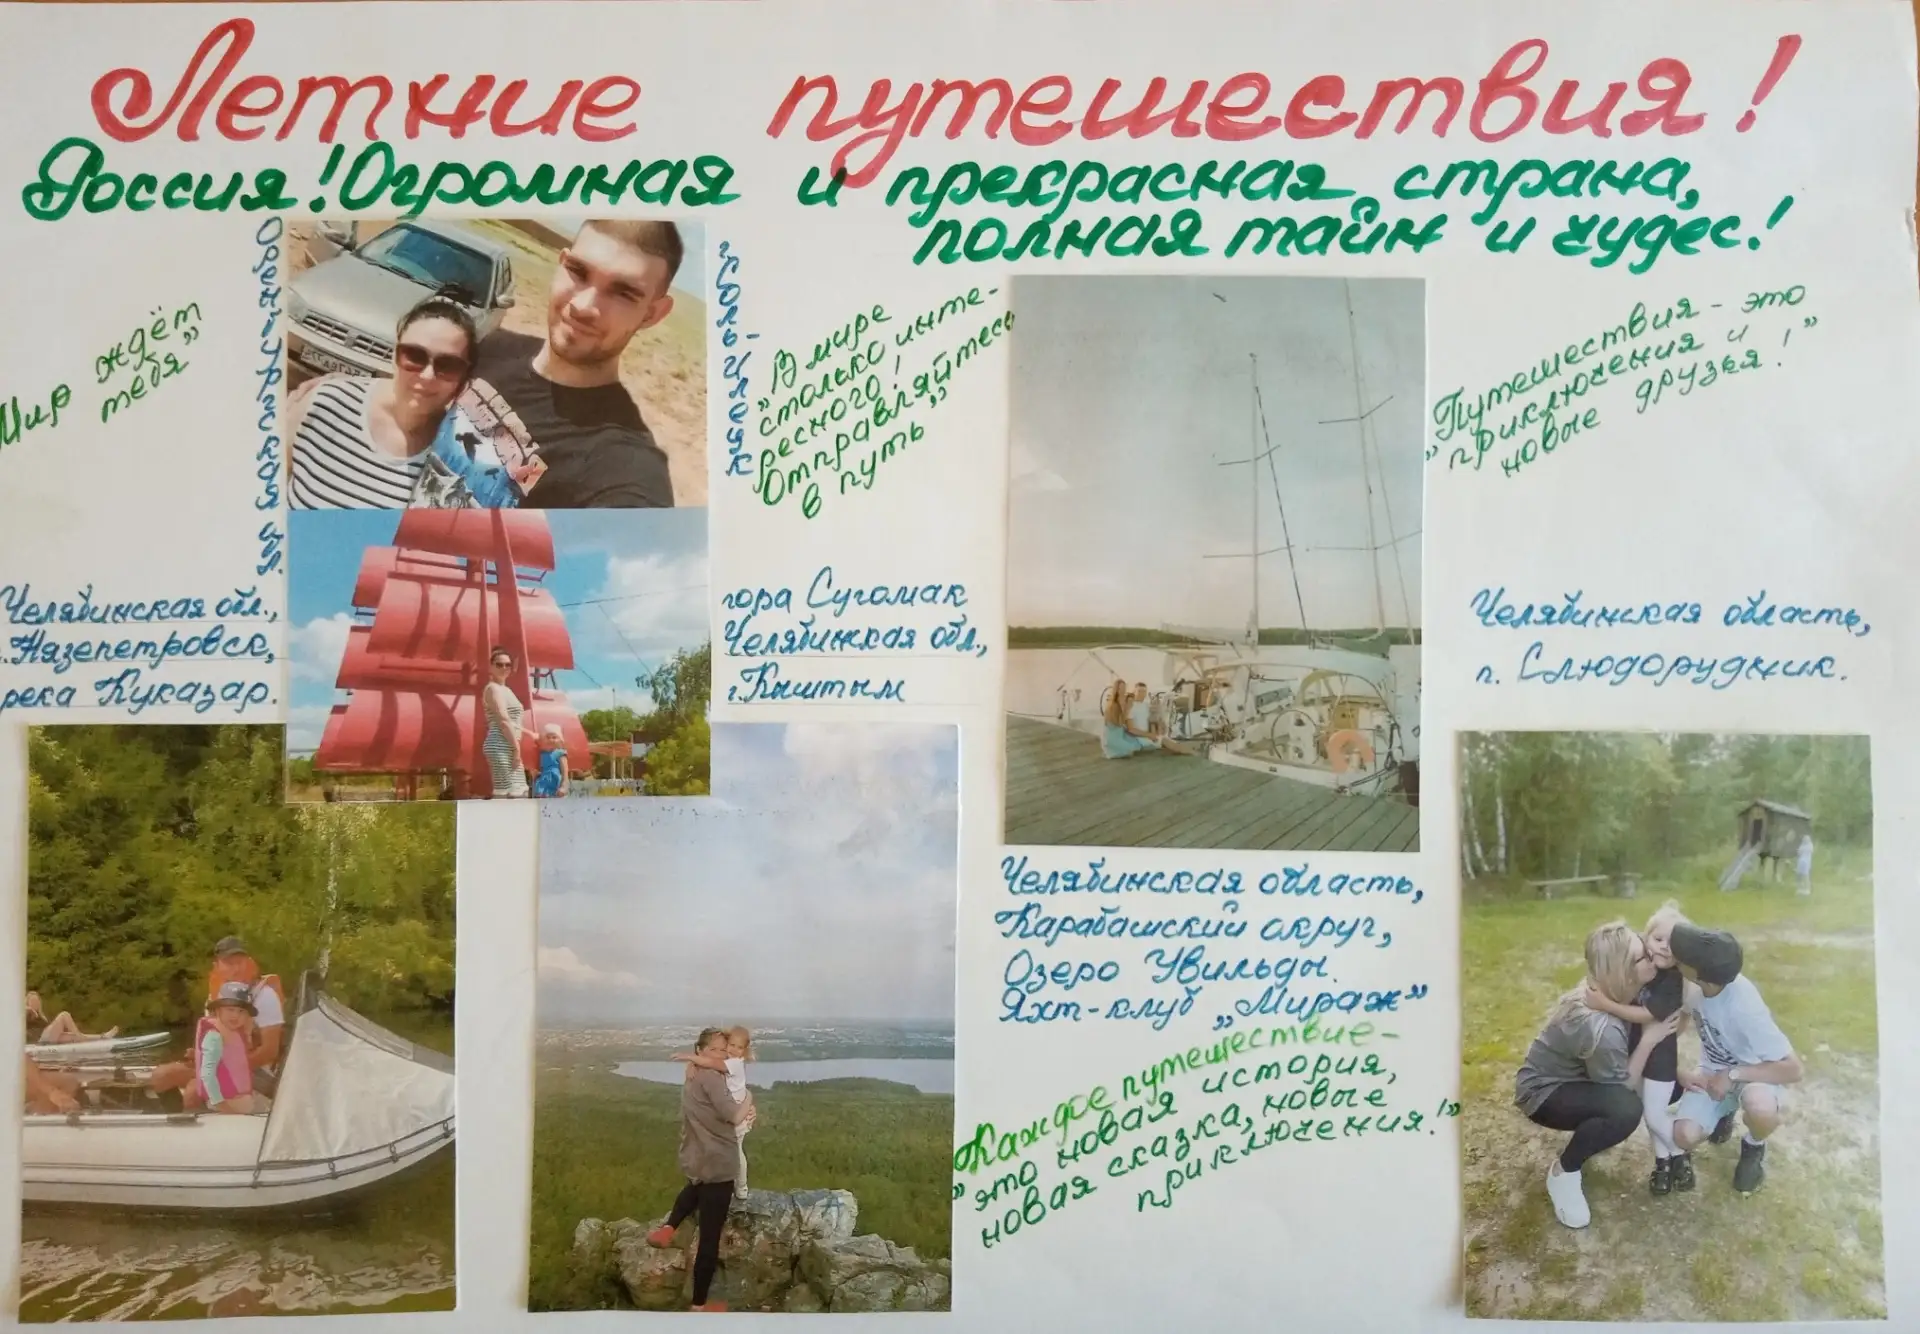 Летние путешествия!
Россия! Огромная и прекрасная страна,
полная тайн и чудес!
Мир ждёт
тебя"
Оренбургская обл.
г. Соль-Илецк
„В мире
столько инте-
ресного!
Отправляйтесь
в путь"
„Путешествия - это
приключения и
новые друзья!"
Челябинская обл.,
г. Нязепетровск,
река Куказар.
гора Сугомак
Челябинская обл.,
г. Кыштым
Челябинская область,
п. Слюдорудник.
Челябинская область,
Карабашский округ,
Озеро Увильды.
Яхт-клуб „Мираж"
„Каждое путешествие -
это новая история,
новая сказка, новые
приключения!"